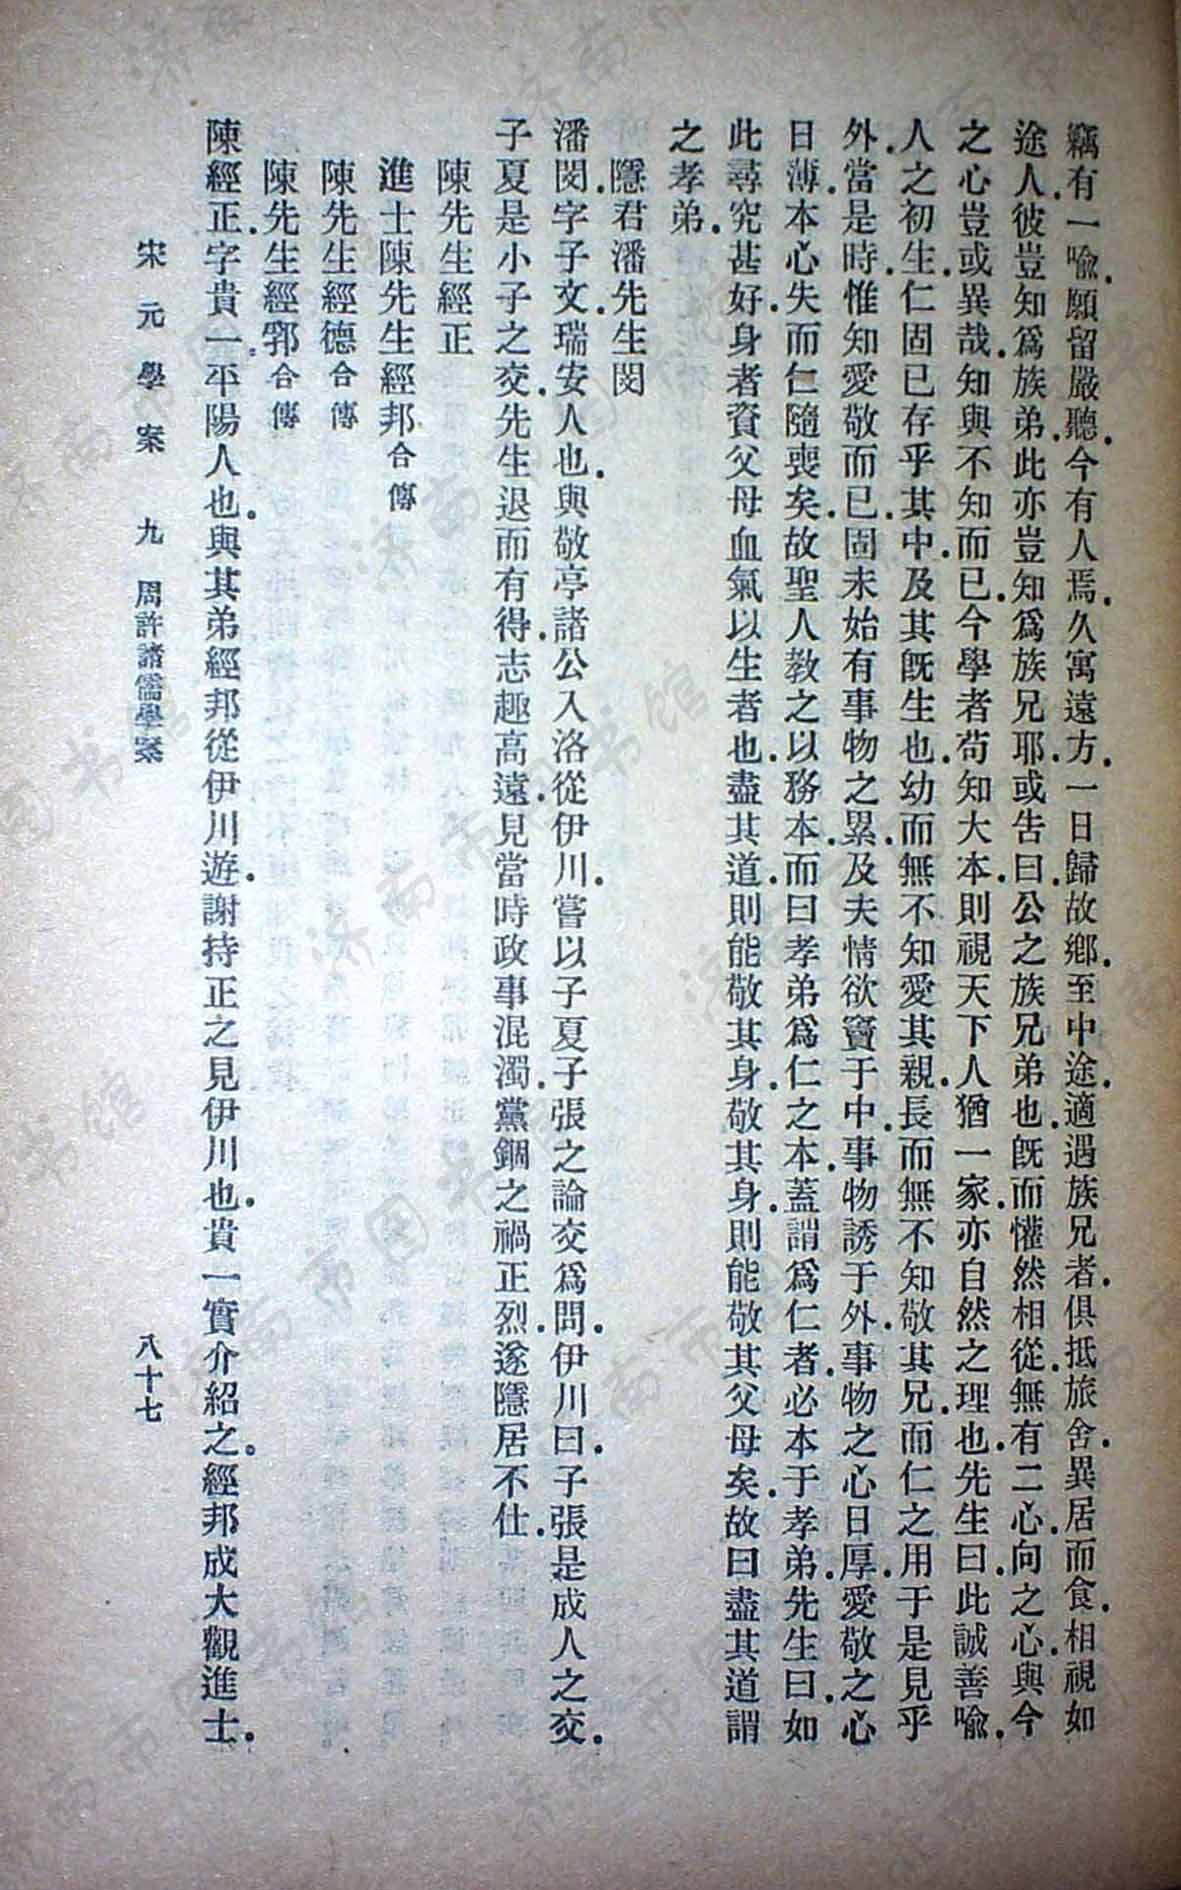 竊有一喩.願留嚴聽.今有人焉.久寓遠方.一日歸故鄕.至中途.適遇族兄者.俱抵旅舍.異居而食.相視如
途人.彼豈知爲族弟.此亦豈知爲族兄耶.或告曰.公之族兄弟也.旣而懽然相從.無有二心.向之心與今
之心豈或異哉.知與不知而已.今學者苟知大本.則視天下人猶一家.亦自然之理也.先生曰.此誠善喩.
人之初生.仁固已存乎其中.及其旣生也.幼而無不知愛其親.長而無不知敬其兄.而仁之用于是見乎
外.當是時.惟知愛敬而已.固未始有事物之累.及夫情欲竇于中.事物誘于外.事物之心日厚.愛敬之心
日薄.本心失而仁隨喪矣.故聖人敎之以務本.而曰孝弟爲仁之本.蓋謂爲仁者.必本于孝弟.先生曰.如
此尋究甚好.身者資父母血氣以生者也.盡其道.則能敬其身.敬其身.則能敬其父母矣.故曰盡其道謂
之孝弟.
隱君潘先生閔
潘閔.字子文.瑞安人也.與敬亭諸公入洛從伊川.嘗以子夏子張之論交爲問.伊川曰.子張是成人之交.
子夏是小子之交.先生退而有得.志趣高遠.見當時政事混濁.黨錮之禍正烈.遂隱居不仕.
陳先生經正
進士陳先生經邦合傳
陳先生經德合傳
陳先生經郛合傳
陳經正.字貴一.平陽人也.與其弟經邦從伊川遊.謝持正之見伊川也.貴一實介紹之.經邦成大觀進士.
宋元學案 九 周許諸儒學案 八十七